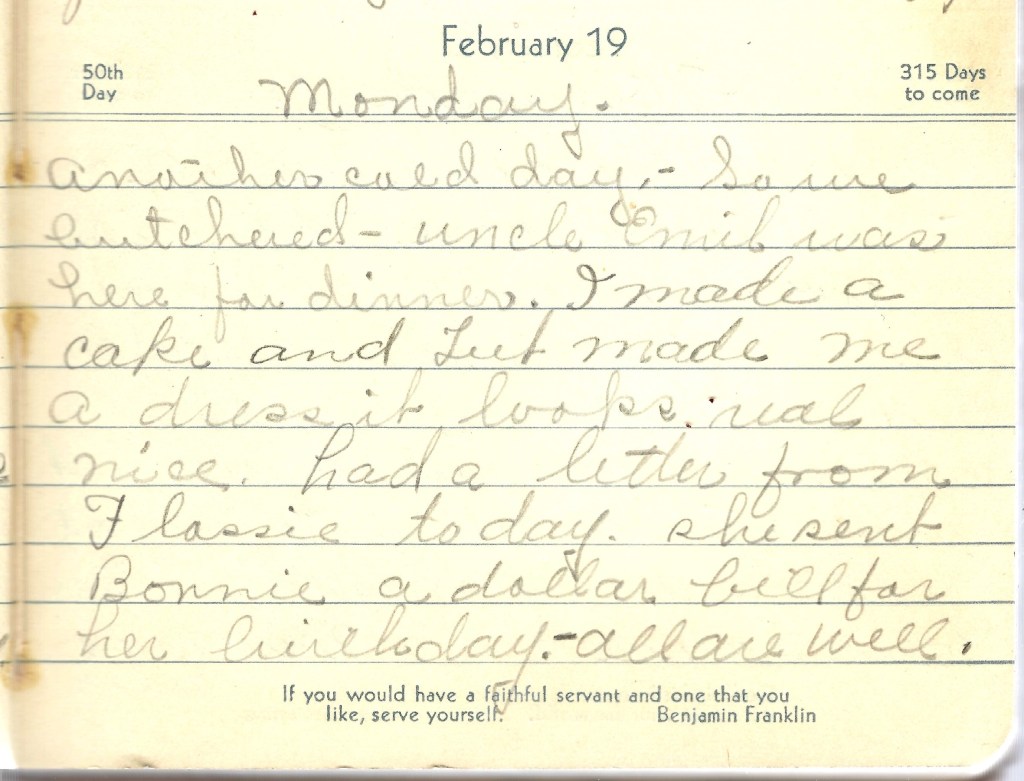 February 19
50th
Day
315 Days
to come
Monday.
another cold day,- So we
butchered- uncle Emil was
here for dinner. I made a
cake and made me
a dress, it looks real
nice. had a letter from
Flossie today. she sent
Bonnie a dollar bill for
her birthday.-all are well.
If you would have a faithful servant and one that you
like, serve yourself.
Benjamin Franklin